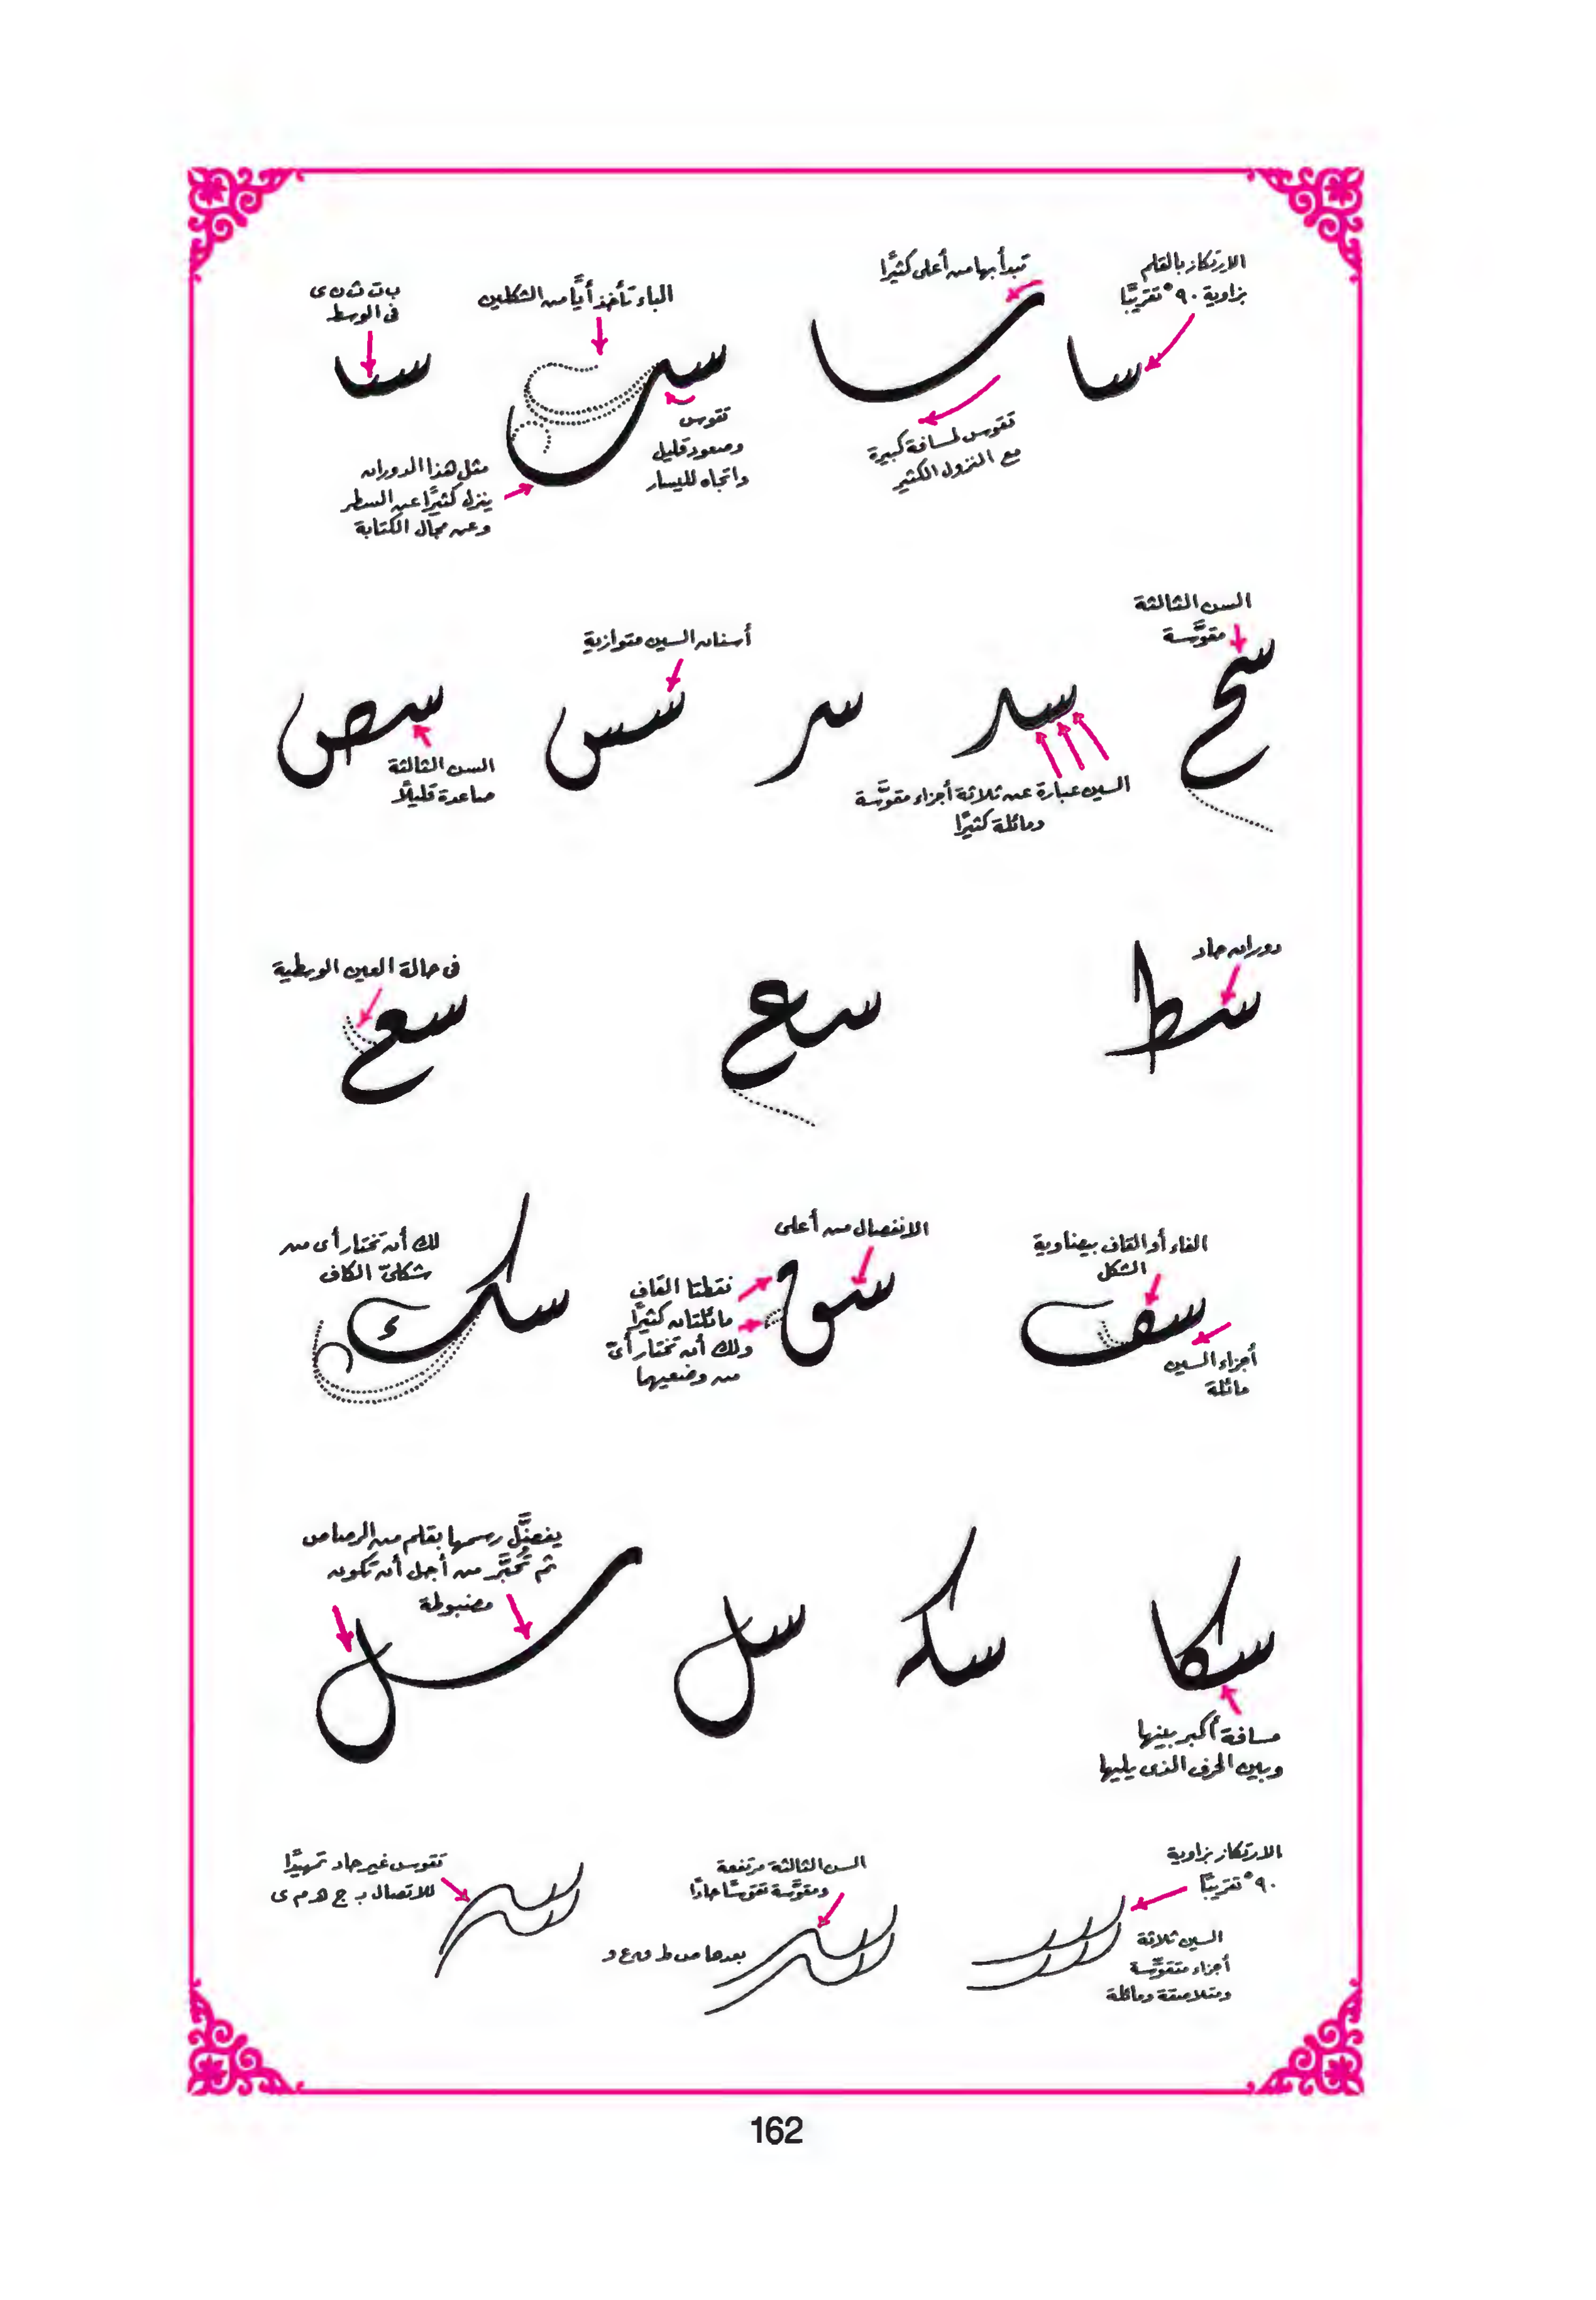 الارتكاز بالقلم
بزاوية ٩٠° تقريبًا
سا
تبدأ بها من أعلى كثيرًا
سا
تقوس لمسافة كبيرة
مع النزول الكثير
الباء تأخذ أيًّا من الشكلين
سب
تقوس
وصعود قليل
واتجاه لليسار
مثل هذا الدوران
ينزل كثيرًا عن السطر
وعن مجال الكتابة
ب ت ث ن ى
فى الوسط
سىا
السن الثالثة
مقوَّسة
سح
سد
السين عبارة عن ثلاثة أجزاء مقوَّسة
ومائلة كثيرًا
سر
أسنان السين متوازية
سس
سص
السن الثالثة
صاعدة قليلًا
دوران حاد
سط
سع
فى حالة العين الوسطية
سع
الفاء أو القاف بيضاوية
الشكل
سف
أجزاء السين
مائلة
الانفصال من أعلى
سق
نقطتا القاف
مائلتان كثيرًا
ولك أن تختار أىّ
من وضعيهما
لك أن تختار أى من
شكلىّ الكاف
سك
سكا
مسافة أكبر بينها
وبين الحرف الذى يليها
سكه
سل
يفضَّل رسمها بقلم من الرصاص
ثم تُحَبَّر من أجل أن تكون
مضبوطة
سل
الارتكاز بزاوية
٩٠° تقريبًا
السين ثلاثة
أجزاء متقوِّسة
ومتلاصقة ومائلة
السن الثالثة مرتفعة
ومقوَّسة تقوسًا حادًا
بعدها ص ط ف ع و
تقوس غير حاد تمهيدًا
للاتصال ب ج ه م ى
162